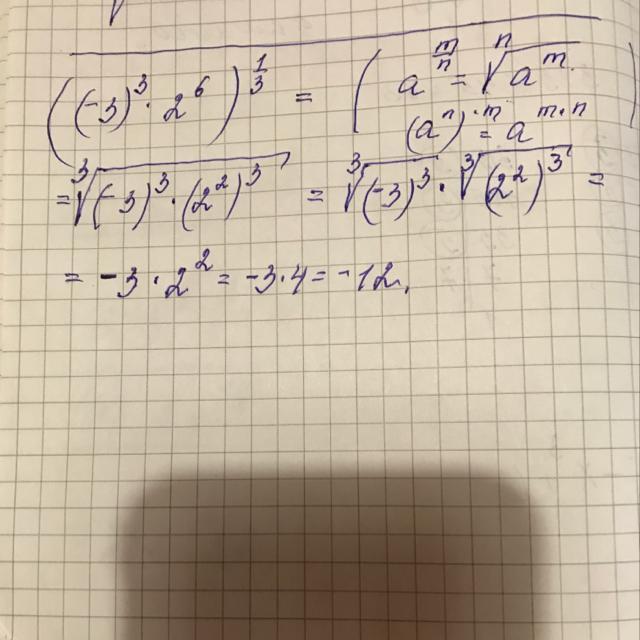 ((-3)³ · 2⁶)^(1/3) = (a^(m/n) = ⁿ√a^m
(aⁿ)^·m = a^(m·n))
= ³√(-3)³ · (2²)³ = ³√(-3)³ · ³√(2²)³ =
= -3 · 2² = -3 · 4 = -12.